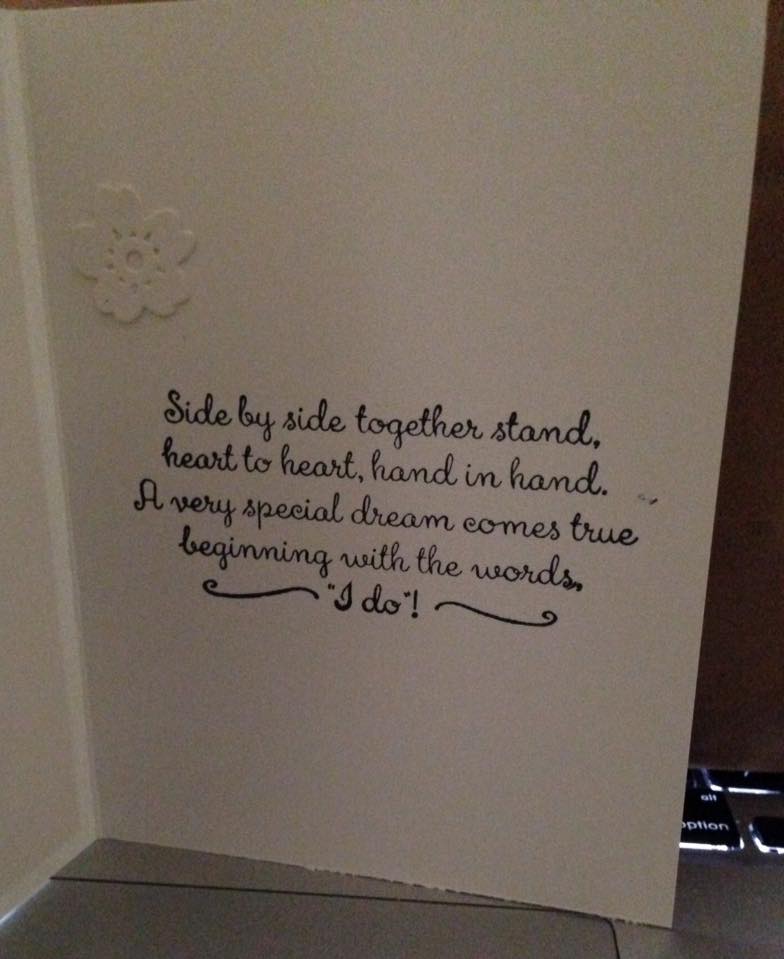 Side by side together stand,
heart to heart, hand in hand.
A very special dream comes true
beginning with the words,
"I do"!
alt
option